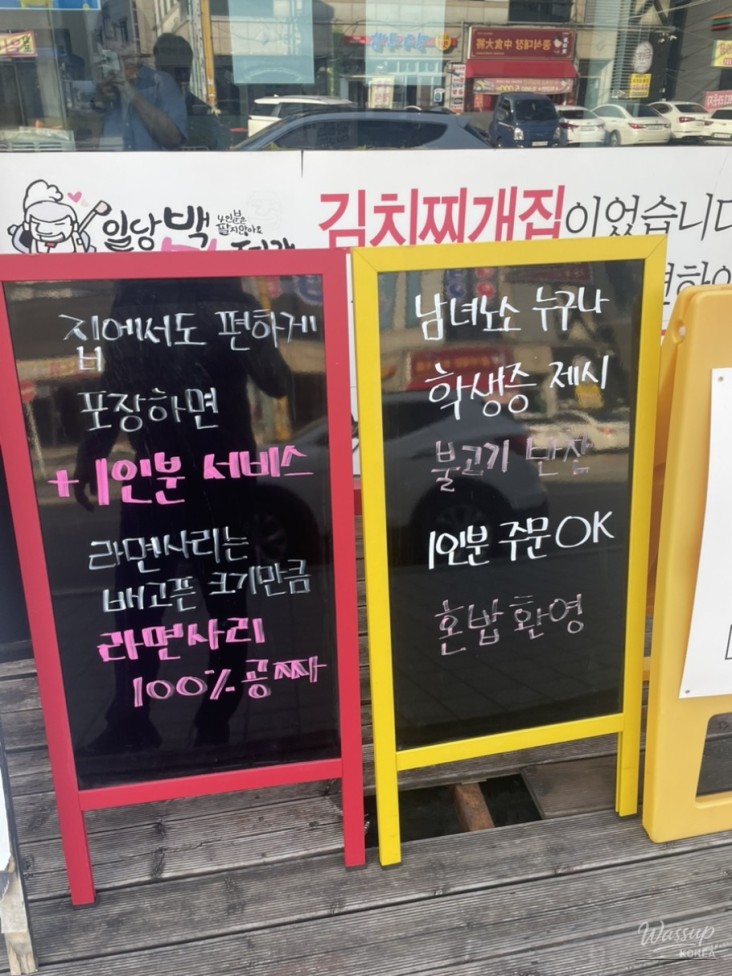 일당백
김치찌개집이었습니다
집에서도 편하게
포장하면
+1인분 서비스
라면사리는
배고픈 크기만큼
라면사리
100% 공짜
남녀노소 누구나
학생증 제시
불고기 반찬
1인분 주문 OK
혼밥 환영
Wassup
KOREA